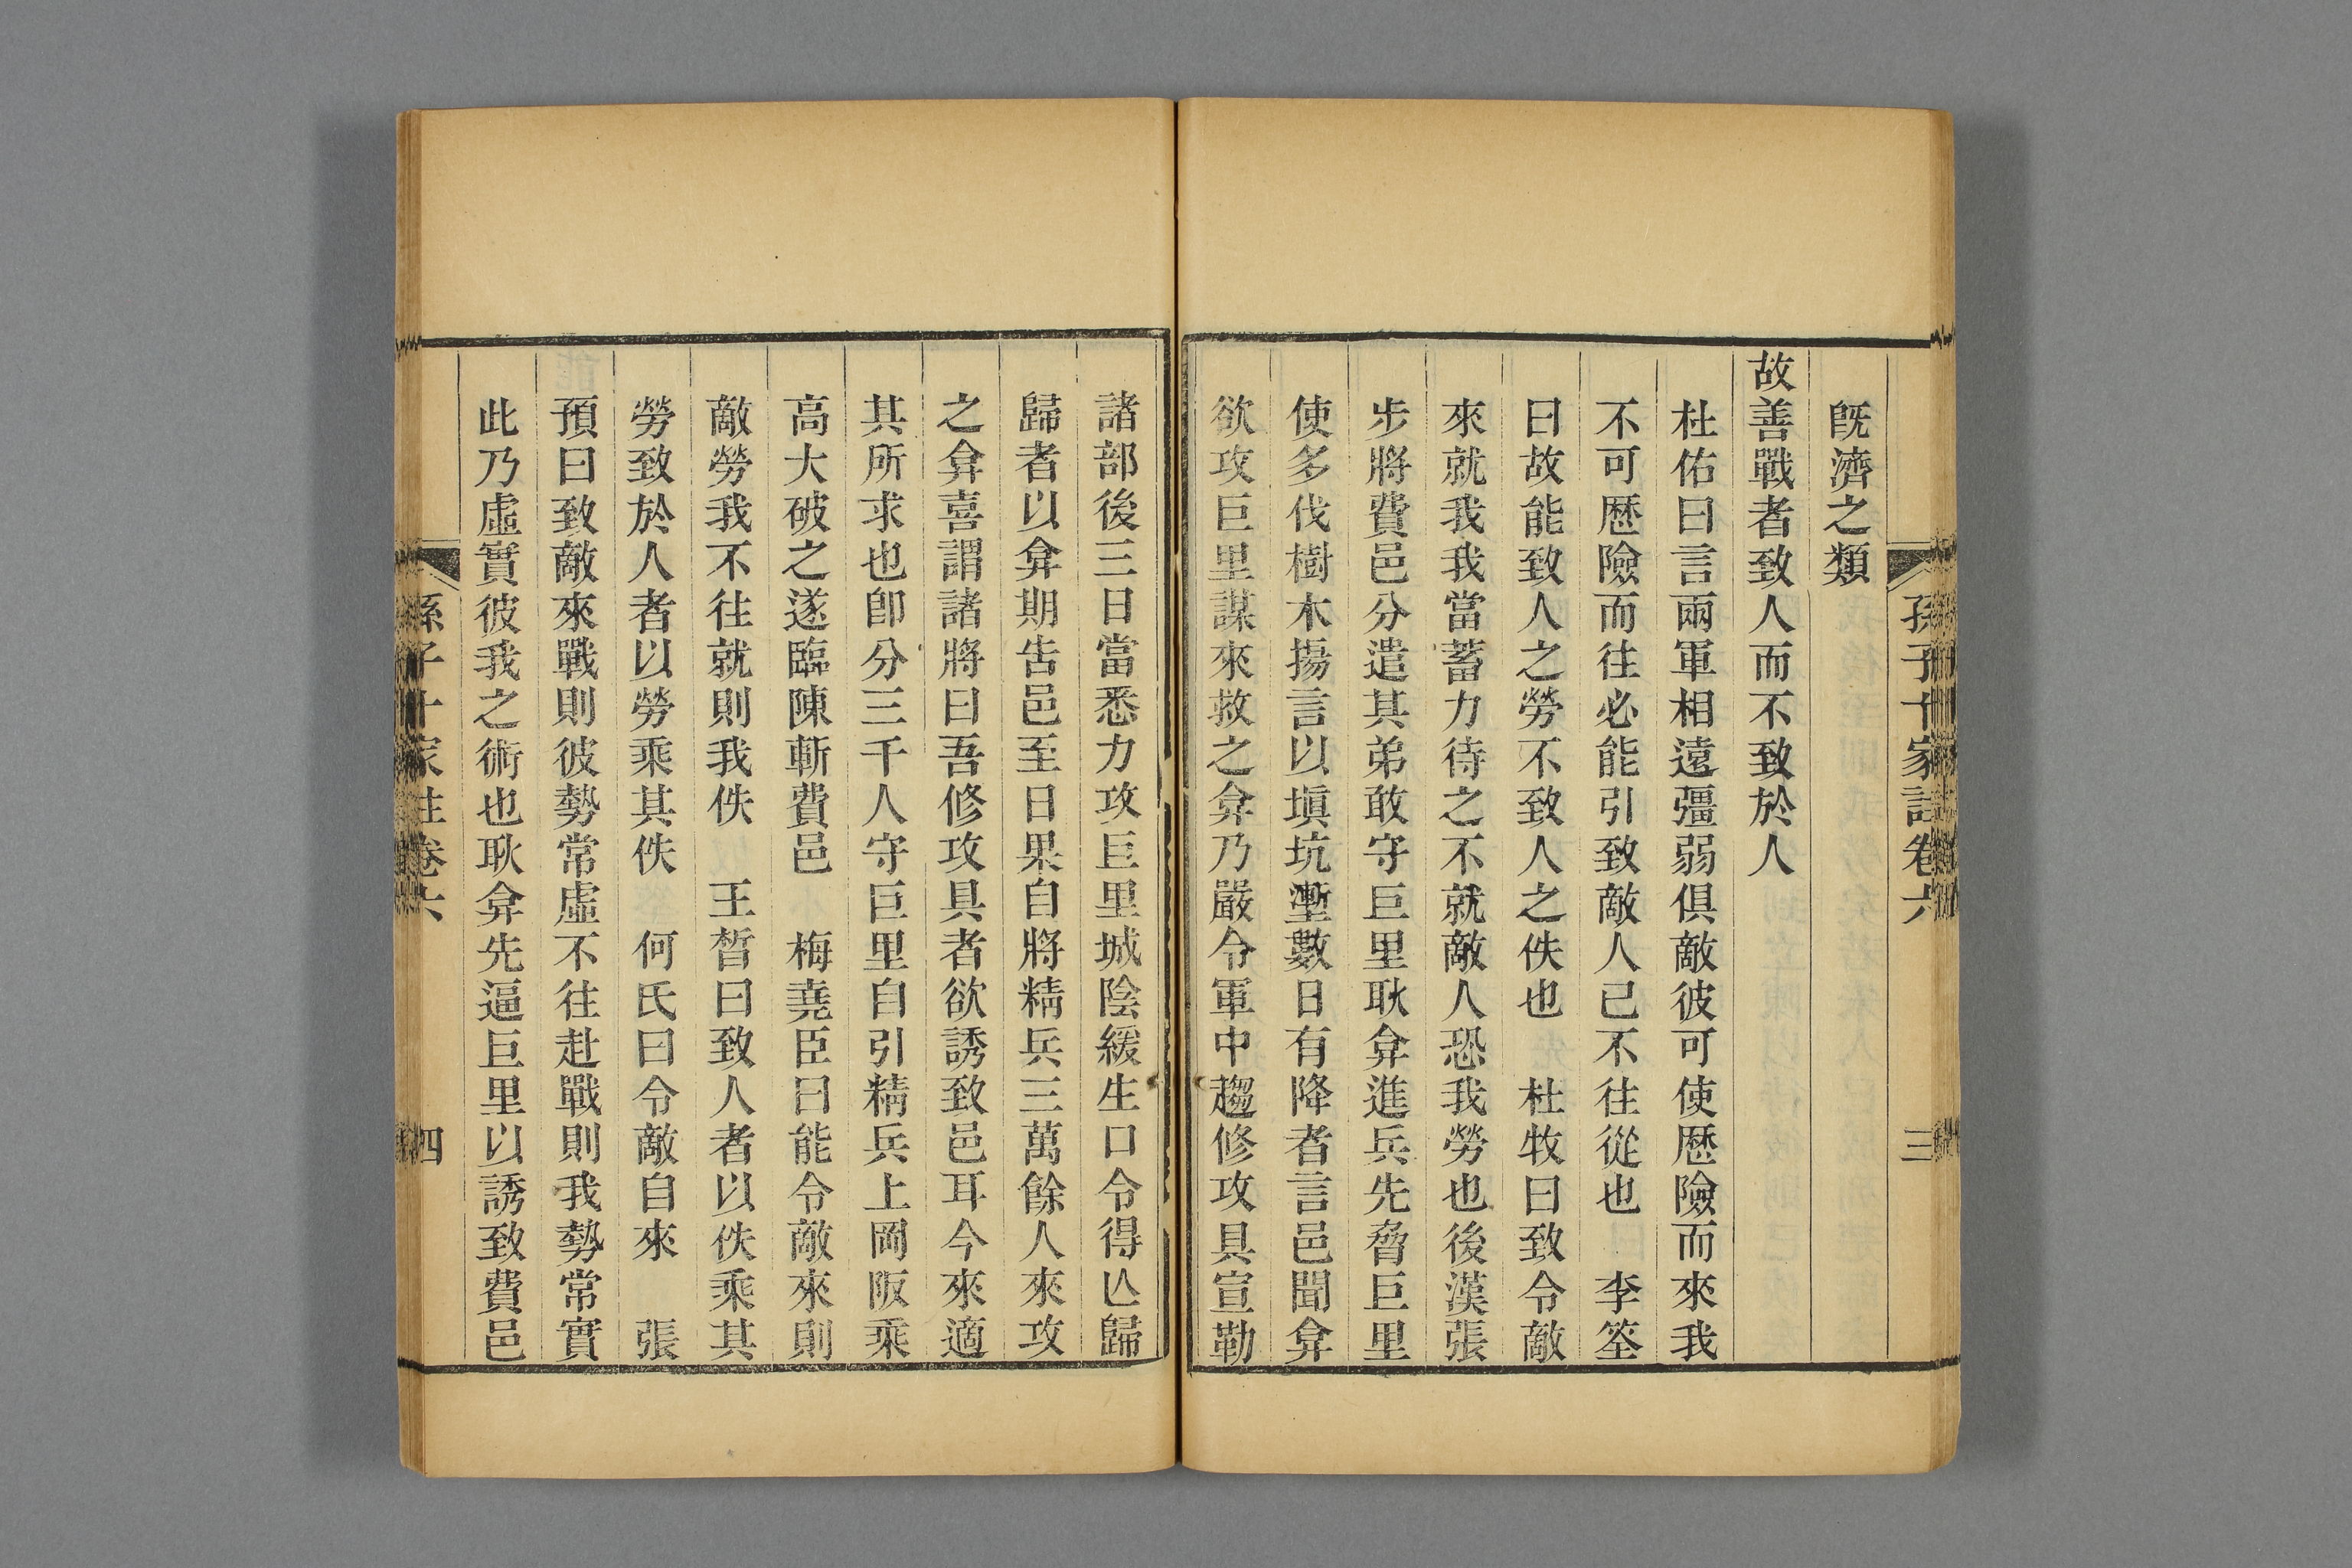 孫子十家註卷六 三
旣濟之類
故善戰者致人而不致於人
杜佑曰言兩軍相遠彊弱俱敵彼可使歷險而來我
不可歷險而往必能引致敵人已不往從也 李筌
曰故能致人之勞不致人之佚也 杜牧曰致令敵
來就我我當蓄力待之不就敵人恐我勞也後漢張
步將費邑分遣其弟敢守巨里耿弇進兵先脅巨里
使多伐樹木揚言以塡坑壍數日有降者言邑聞弇
欲攻巨里謀來救之弇乃嚴令軍中趨修攻具宣勒
諸部後三日當悉力攻巨里城陰緩生口令得亾歸
歸者以弇期告邑至日果自將精兵三萬餘人來攻
之弇喜謂諸將曰吾修攻具者欲誘致邑耳今來適
其所求也卽分三千人守巨里自引精兵上岡阪乘
高大破之遂臨陳斬費邑 梅堯臣曰能令敵來則
敵勞我不往就則我佚 王晳曰致人者以佚乘其
勞致於人者以勞乘其佚 何氏曰令敵自來 張
預曰致敵來戰則彼勢常虛不往赴戰則我勢常實
此乃虛實彼我之術也耿弇先逼巨里以誘致費邑
孫子十家註卷六 四